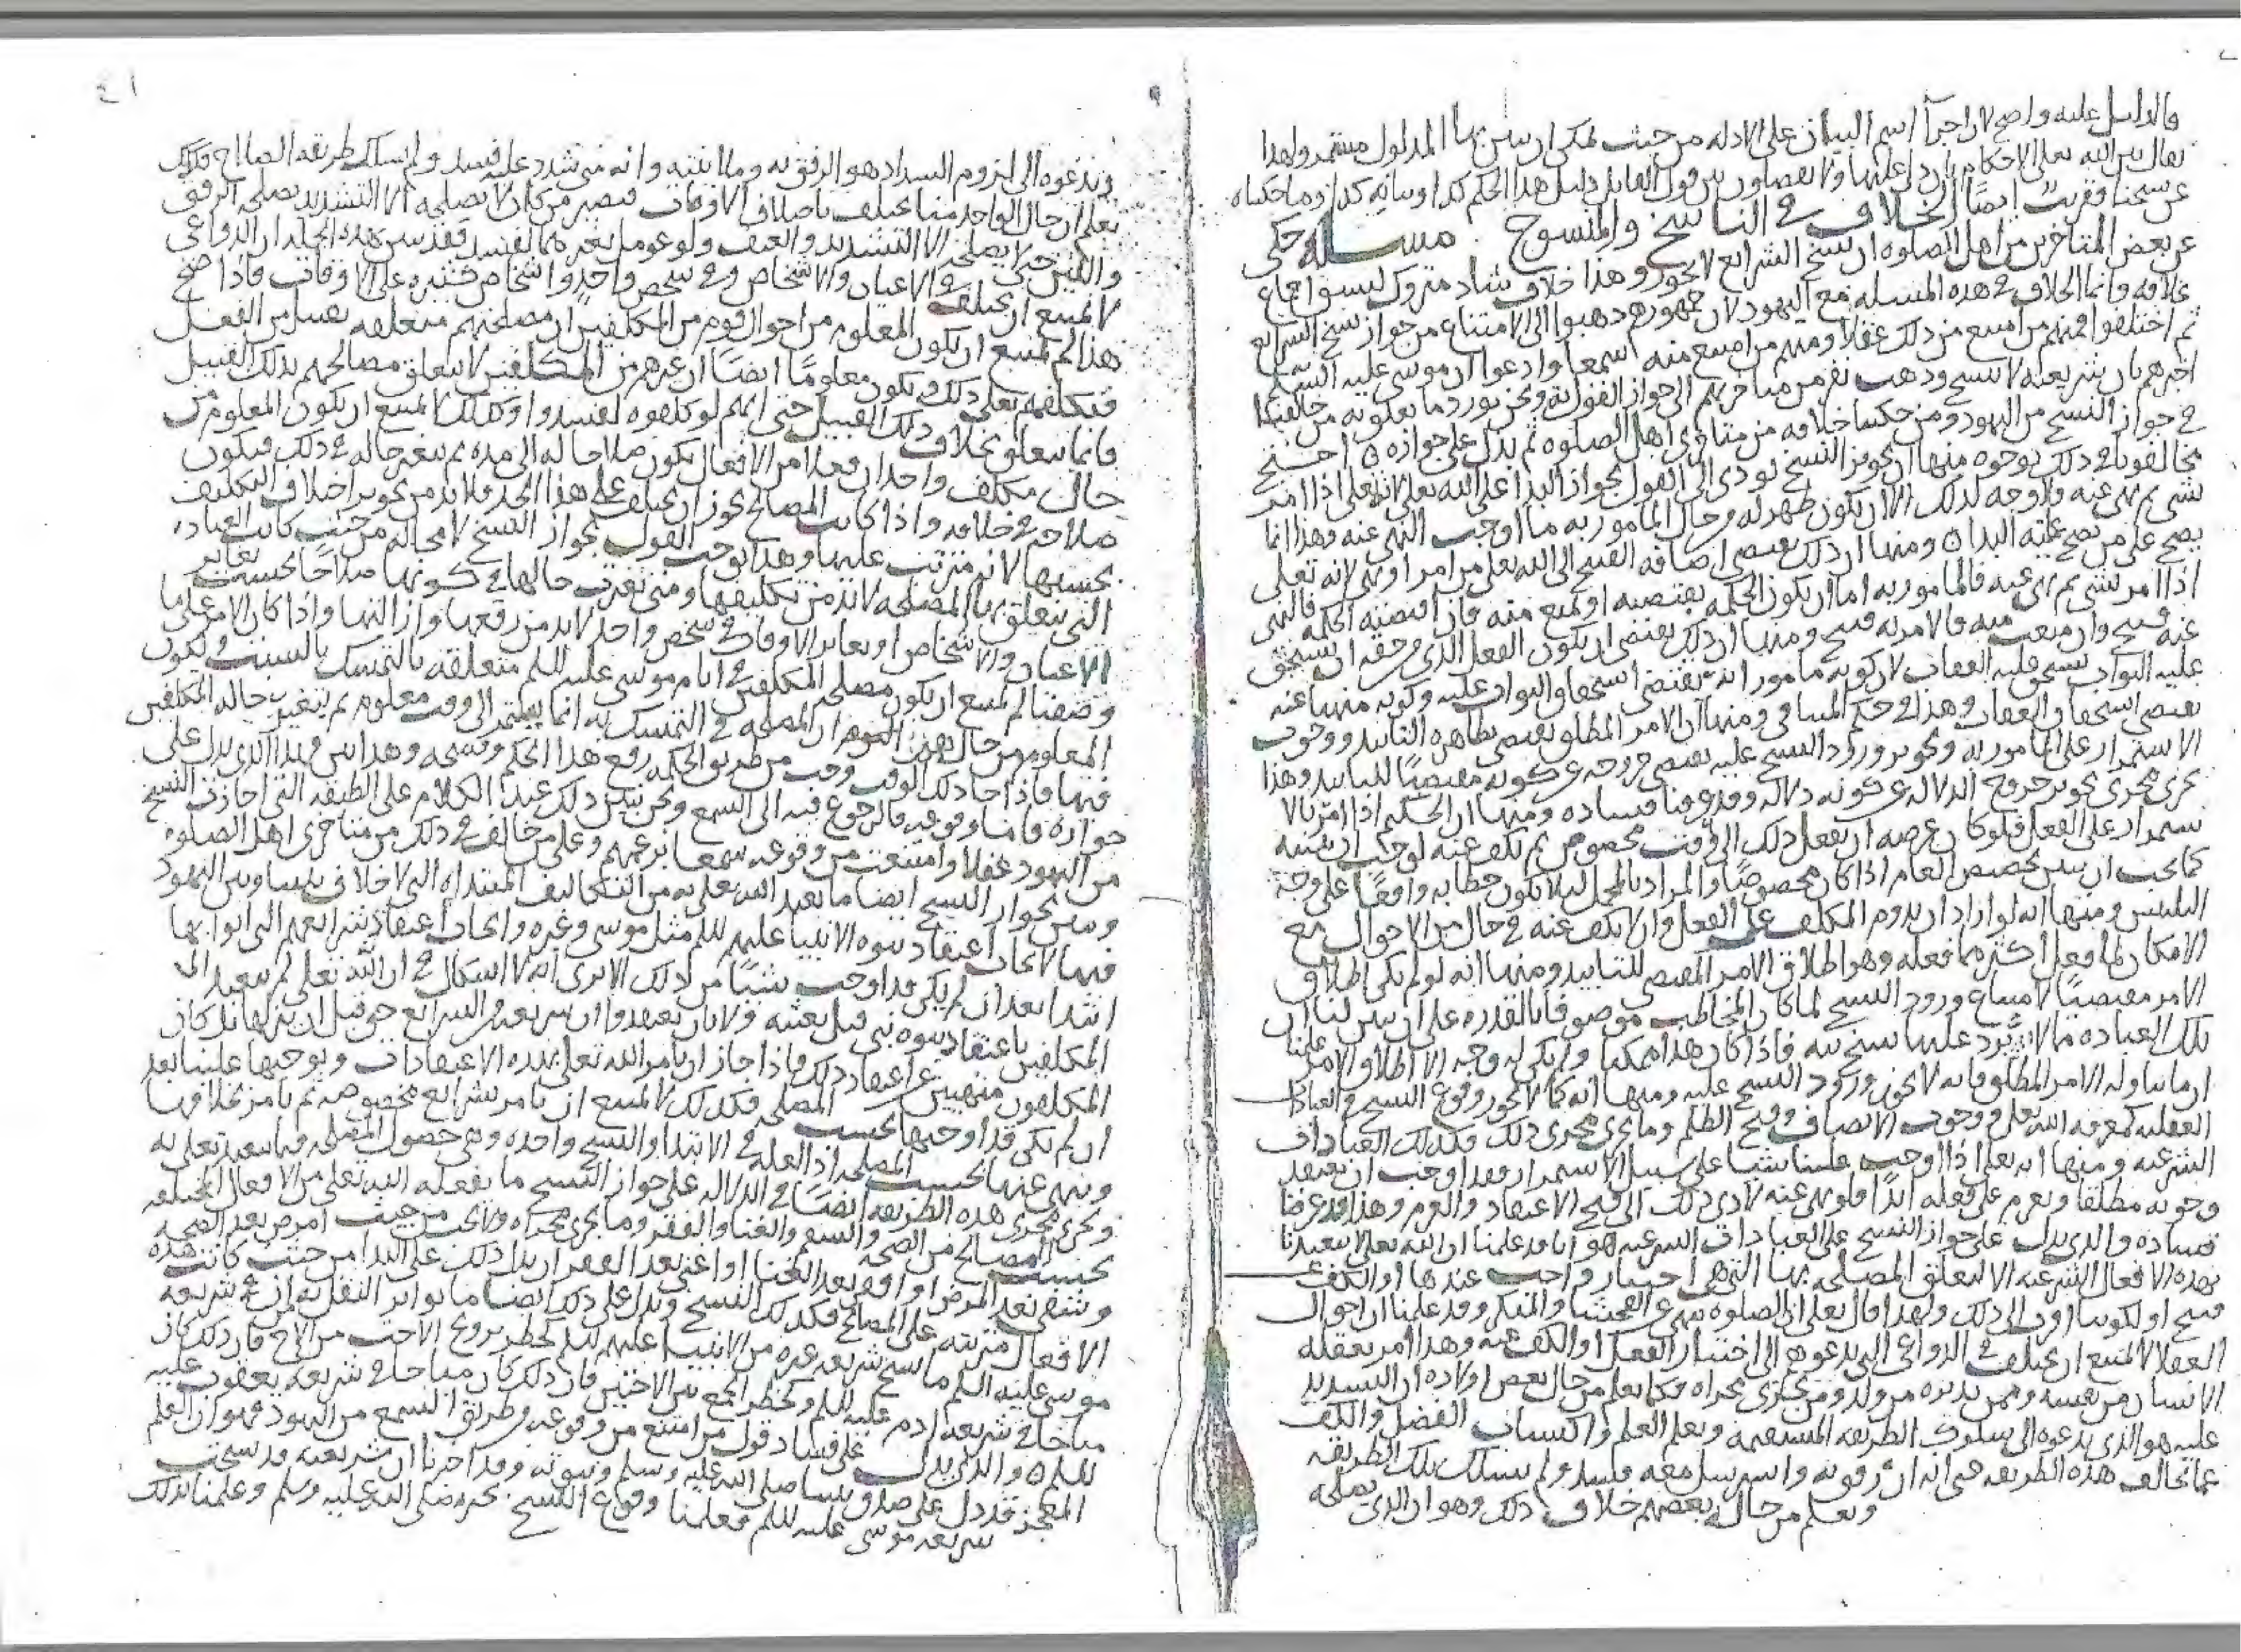 فالدليل عليه واضح لان اجرا اسم البيان على الادله من حيث يمكن ان يتبين بها المدلول مستمر ولهذا
يقال بين الله تعلى الاحكام بان دل عليها ولا يفصلون بين قول القايل دليل هذا الحكم كذا وبيانه كذا وما حكيناه
عن شيخنا فقريب ايضا الخلاف في الناسخ والمنسوخ مسله حكى
عن بعض المتاخرين من اهل الصلوه ان نسخ الشرايع لا يجوز وهذا خلاف شاذ متروك لسبق اجماع
خلافه وانما الخلاف في هذه المسله مع اليهود لان جمهورهم ذهبوا الى الامتناع من جواز نسخ الشرايع
ثم اختلفوا فمنهم من امتنع من ذلك عقلا ومنهم من امتنع منه سمعا وادعوا ان موسى عليه السلم
اخبرهم بان شريعته لا تنسخ وذهب نفر من متاخريهم الى جواز القول به ونحن نورد ما تعلق به من خالفنا
في جواز النسخ من اليهود ومن حكينا خلافه من متاخري اهل الصلوه ثم ندل على جوازه احتج
مخالفونا في ذلك بوجوه منها ان تجويز النسخ يودي الى القول بجواز البدا على الله تعلى لانه تعلى اذا امر
بشي ثم نهى عنه ولا وجه لذلك الا ان يكون ظهر له من حال المامور به ما اوجب النهي عنه وهذا انما
يصح على من يصح عليه البدا ومنها ان ذلك يقتضي اضافه القبيح الى الله تعلى من امر او نهي لانه تعلى
اذا امر بشي ثم نهى عنه فالمامور به اما ان يكون الحكمه تقتضيه او تمنع منه فان اقتضته الحكمه فالنهي
عنه قبيح وان منعت منه فالامر به قبيح ومنها ان ذلك يقتضي ان يكون الفعل الذي من حقه ان يستحق
عليه الثواب يستحق عليه العقاب لان كونه مامورا به يقتضي استحقاق الثواب عليه وكونه منهيا عنه
يقتضي استحقاق العقاب وهذا في حكم المتنافي ومنها ان الامر المطلق يقتضي بظاهره التابيد ووجوب
الاستمرار على المامور به وتجويز ورود النسخ عليه يقتضي خروجه عن كونه مقتضيا للتابيد وهذا
يجري مجرى تجويز خروج الدلاله عن كونه دلاله وقد عرفنا فساده ومنها ان الحكيم اذا امر بالا
ستمرار على الفعل فلو كان غرضه ان يفعل ذلك الى وقت مخصوص ثم يكف عنه لوجب ان يبينه
كما يجب ان يبين تخصيص العام اذا كان مخصوصا والمراد بالمجمل ليلا يكون خطابه واقعا على وجه
التلبيس ومنها انه لو اراد ان يدوم المكلف على الفعل وان لا يكف عنه في حال من الاحوال مع
الامكان لما فعل اكثر مما فعله وهو اطلاق الامر المقتضي للتابيد ومنها انه لو لم يكن اطلاق
الامر مقتضيا لامتناع ورود النسخ لما كان المخاطب موصوفا بالقدره على ان يبين لنا ان
تلك العباده مما لا يرد عليها نسخ فاذا كان هذا ممكنا ولم يكن له وجه الا اطلاق الامر علمنا
ان ما تناوله الامر المطلق فانه لا يجوز ورود النسخ عليه ومنها انه كما لا يجوز وقوع النسخ في العبادات
العقليه كمعرفه الله تعلى ووجوب الانصاف وقبح الظلم وما يجري مجرى ذلك فكذلك العبادات
الشرعيه ومنها انه تعلى اذا اوجب علينا شيا على سبيل الاستمرار فقد اوجب ان نعتقد
وجوبه مطلقا ونعزم على فعله ابدا فلو نهى عنه لادى ذلك الى قبح الاعتقاد والعزم وهذا قد عرفنا
فساده والذي يدل على جواز النسخ على العبادات الشرعيه هو انا قد علمنا ان الله تعلى لا يتعبدنا
بهذه الافعال الشرعيه الا لتعلق المصلحه بها التي هي اختيار واجب عندها او الكف عن
قبيح او لكونها اقرب الى ذلك ولهذا قال تعلى ان الصلوه تنهى عن الفحشا والمنكر وقد علمنا ان احوال
العقلا لا يمتنع ان يختلف في الدواعي التي تدعوهم الى اختيار الفعل او الكف عنه وهذا امر يعقله
الانسان من نفسه وممن يدبره من ولد ومن يجري مجراه فكما يعلم من حال بعض اولاده ان التشديد
عليه هو الذي يدعوه الى سلوك الطريقه المستقيمه وتعلم العلم واكتساب الفضل والكف
عما يخالف هذه الطريقه حتى انه ان رفق به واسترسل معه فسد ولم يسلك تلك الطريقه
ويعلم من حال بعضهم خلاف ذلك وهو ان الذي يصلحه
٤١
ويدعوه الى لزوم السداد هو الرفق به وملاينته وانه متى شدد عليه فسد ولم يسلك طريقه الصلاح فكذلك
يعلم ان حال الواحد منا يختلف باختلاف الاوقات فيصير من كان لا يصلحه الا التشديد يصلحه الرفق
واللين حتى لا يصلحه الا التشديد والعنف ولو عومل بغيرهما لفسد فقد بين بهذه الجمله ان الدواعي
لا يمتنع ان يختلف في الاعيان والاشخاص وفي شخص واحد واشخاص كثيره على الاوقات فاذا صح
هذا لم يمتنع ان يكون المعلوم من احوال قوم من المكلفين ان مصلحتهم متعلقه بقبيل من الفعل
فيكلفهم تعلى ذلك ويكون معلوما ايضا ان غيرهم من المكلفين لا يتعلق مصالحهم بذلك القبيل
وانما يتعلق بخلاف ذلك القبيل حتى انهم لو كلفوه لفسدوا وكذلك لا يمتنع ان يكون المعلوم من
حال مكلف واحد ان فعلا من الافعال يكون صلاحا له الى مده ثم يتغير حاله في ذلك فيكون
صلاحه في خلافه واذا كانت المصالح يجوز ان يختلف على هذا الحد فلا بد من تجويز اختلاف التكليف
بحسبها لانه مترتب عليها وهذا يوجب القول بجواز النسخ لا محاله من حيث كانت العباده
التي يتعلق بها المصلحه لا بد من تكليفها ومتى تغيرت حالها في كونها صلاحا بحسب تغاير
الاعيان والاشخاص او تغاير الاوقات في شخص واحد لا بد من رفعها وازالتها واذا كان الامر على ما
وصفنا لم يمتنع ان يكون مصلحه المكلفين في ايام موسى عليه السلم متعلقه بالتمسك بالسبت ويكون
المعلوم من حال القوم ان المصلحه في التمسك به انما يستمر الى وقت معلوم ثم يتغير حاله المكلفين
فيها فاذا جا ذلك الوقت وجب من طريق الحكمه رفع هذا الحكم ونسخه وهذا بين فهذا الذي يدل على
جوازه فاما وقوعه فالرجوع فيه الى السمع ونحن نبين ذلك عند الكلام على الطبقه التي اجازت النسخ
من اليهود عقلا وامتنعت من وقوعه سمعا بزعمهم وعلى من خالف في ذلك من متاخري اهل الصلوه
ويبين جواز النسخ ايضا ما تعبد الله تعلى به من التكاليف المبتداه التي لا خلاف بيننا وبين اليهود
فيها لايجاب اعتقاد نبوه الانبيا عليهم السلم مثل موسى وغيره وايجاب اعتقاد شرايعهم التي اتوا بها
ابتدا بعد ان لم يكن قد اوجب شيئا من ذلك الا ترى انه لا اشكال في ان الله تعلى لم يتعبد
المكلفين باعتقاد نبوه نبي قبل بعثته ولا بان يعتقدوا ان شريعته من الشرايع حق قبل ان ينزلها بل كان
المكلفون منهيين عن اعتقاد ذلك فاذا جاز ان يامر الله تعلى بهذه الاعتقادات ويوجبها علينا بعد
ان لم يكن قد اوجبها بحسب المصلحه فكذلك لا يمتنع ان يامر بشرايع مخصوصه ثم يامر بخلافها
وينهى عنها بحسب المصلحه اذ العله في الابتدا والنسخ واحده وهي حصول المصلحه فيما يتعبد تعلى به
ويجري مجرى هذه الطريقه ايضا في الدلاله على جواز النسخ ما يفعله الله تعلى من الافعال المختلفه
بحسب المصالح من الصحه والسقم والغنا والفقر وما يجري مجراه ولا يجب من حيث امرض بعد الصحه
وشفى بعد المرض او افقر بعد الغنا او اغنى بعد الفقر ان يدل ذلك على البدا من حيث كانت هذه
الافعال مترتبه على المصالح فكذلك النسخ ويدل على ذلك ايضا ما تواتر النقل به ان في شريعه
موسى عليه السلم ما نسخ شريعه غيره من الانبيا عليهم السلم كحظر تزويج الاخت من الاخ فان ذلك كان
مباحا في شريعه ادم عليه السلم وكحظر الجمع بين الاختين فان ذلك كان مباحا في شريعه يعقوب عليه
السلم والذي يدل على فساد قول من امتنع من وقوعه من طريق السمع من اليهود فهو ان العلم
المعجز قد دل على صدق نبينا صلى الله عليه وسلم ونبوته وقد اخبرنا ان شريعته قد نسخت
شريعه موسى عليه السلم فعلمنا وقوع النسخ بخبره صلى الله عليه وسلم وعلمنا بذلك